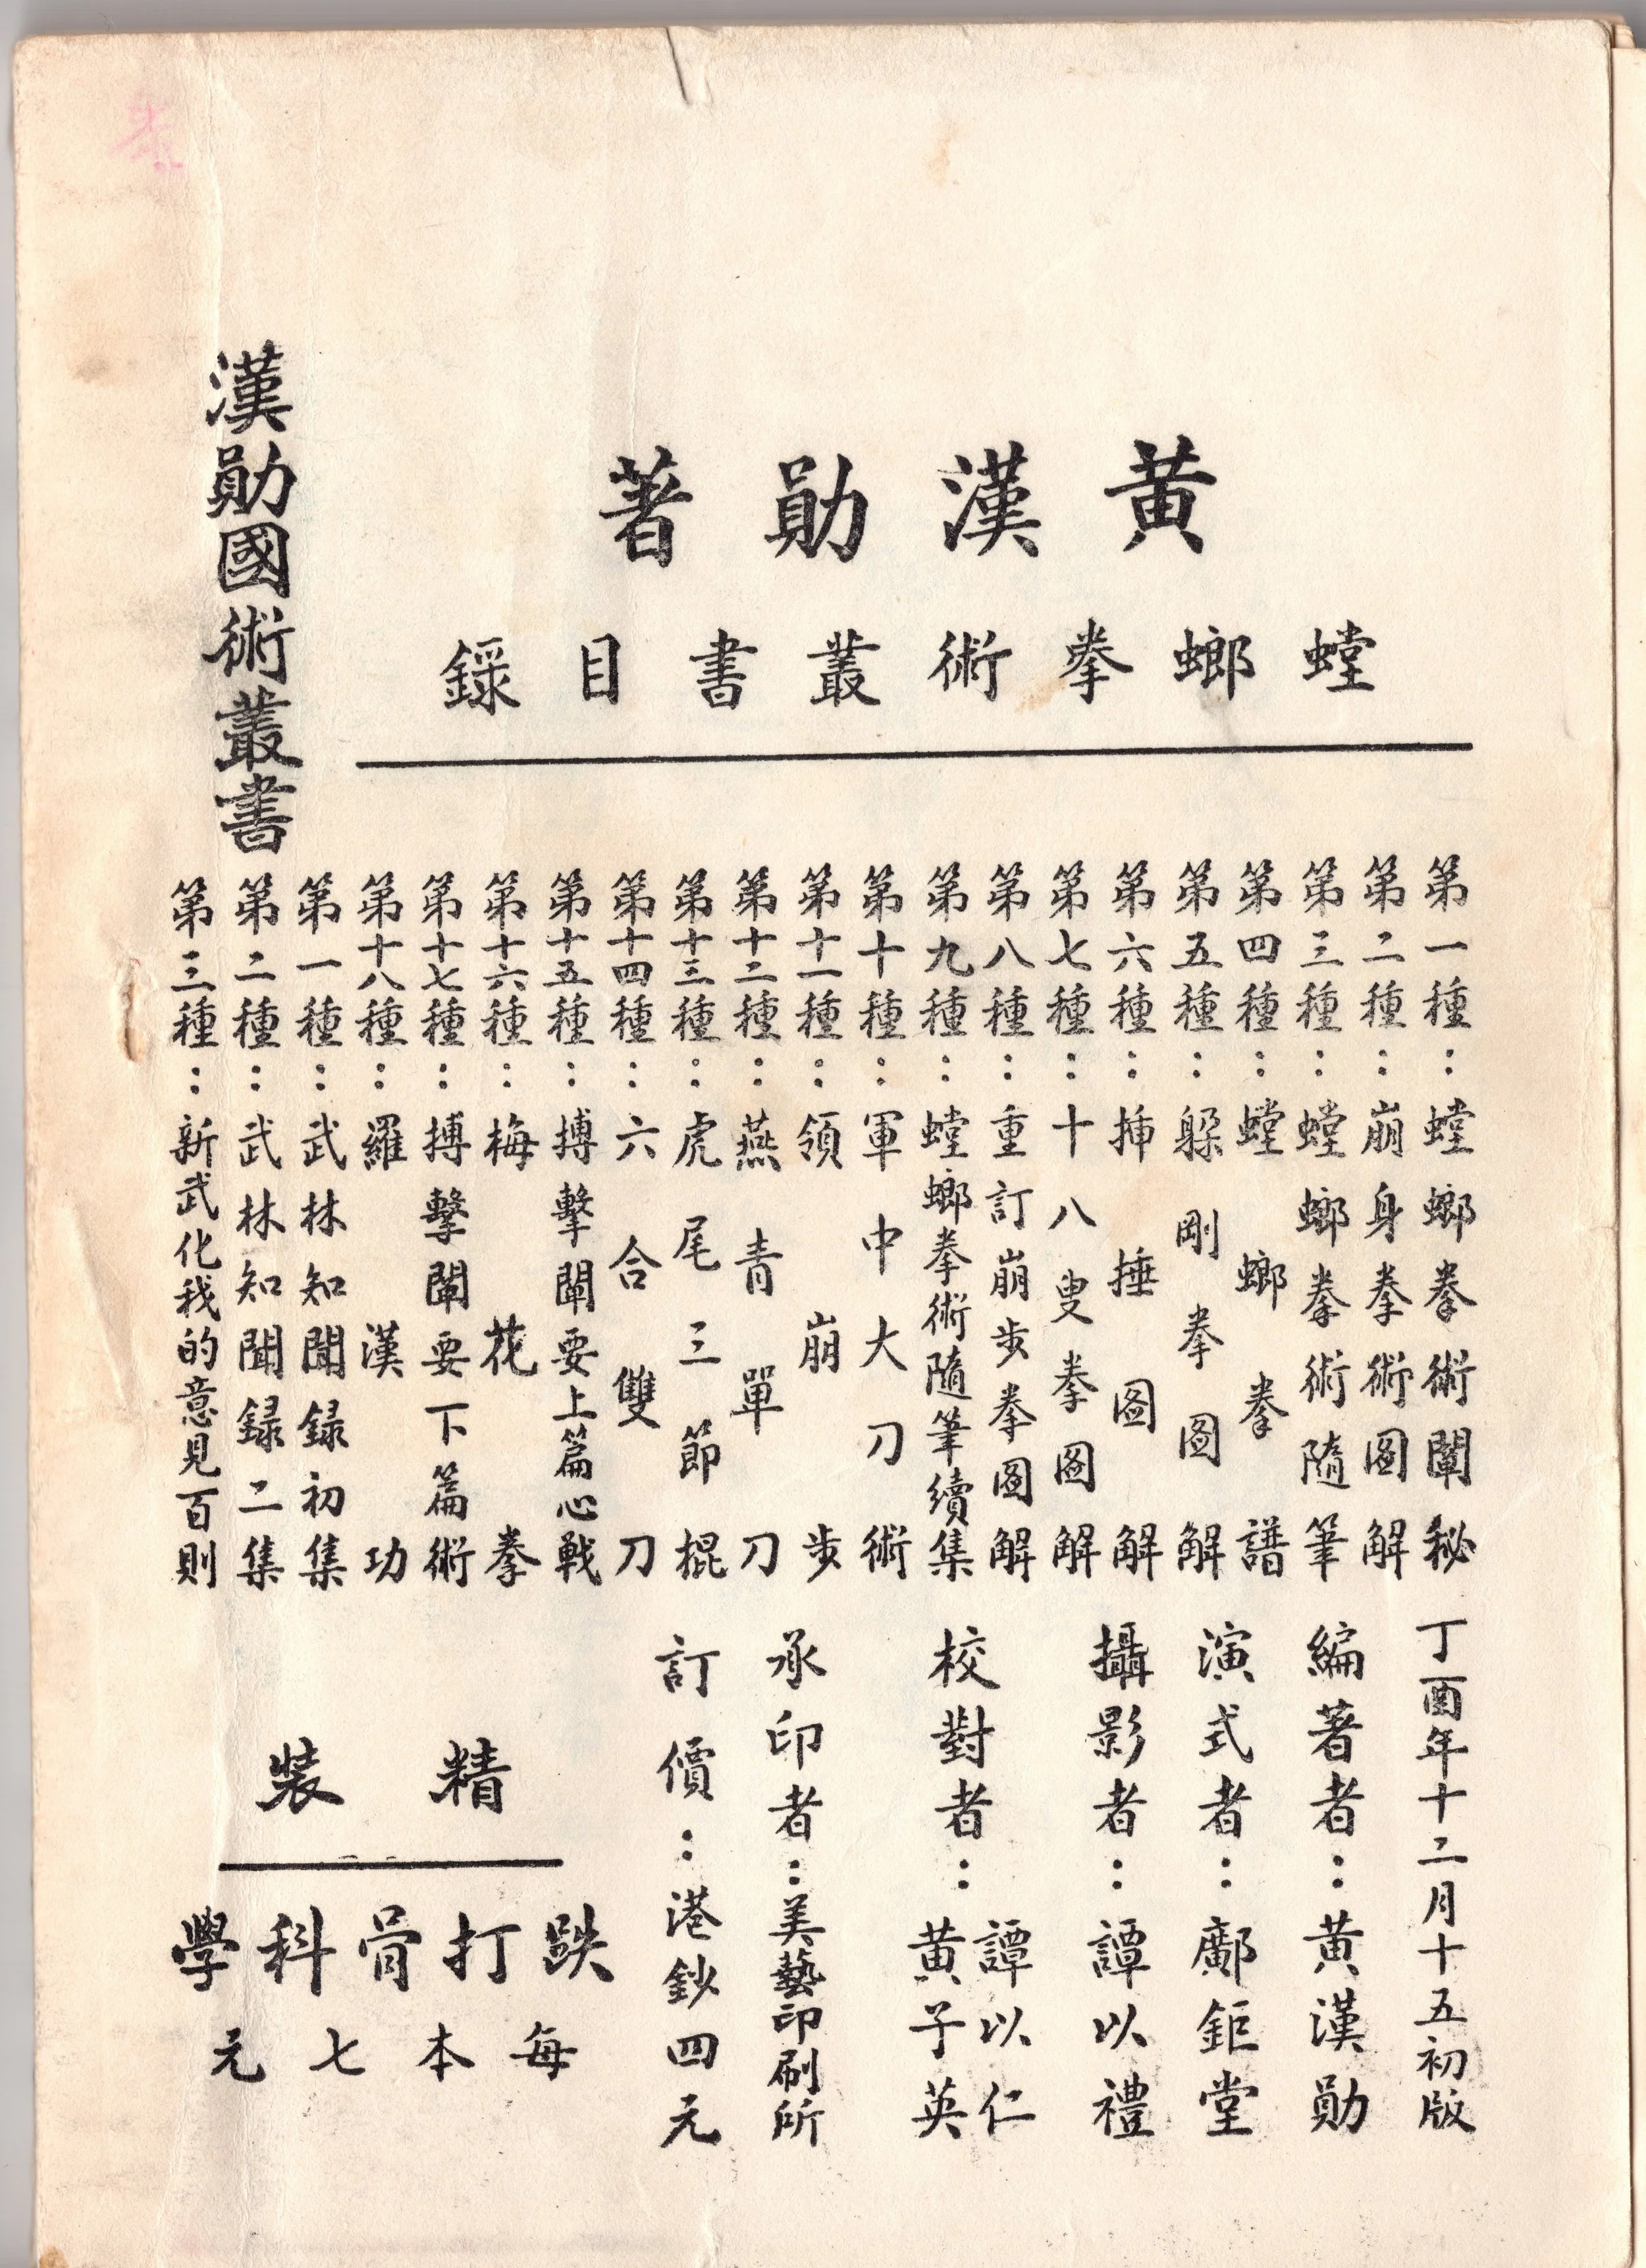 黄漢勛著
螳螂拳術叢書目錄
第一種：螳螂拳術闡秘
第二種：崩身拳術图解
第三種：螳螂拳術隨筆
第四種：螳螂拳譜
第五種：躱剛拳图解
第六種：揷捶图解
第七種：十八叟拳图解
第八種：重訂崩步拳图解
第九種：螳螂拳術隨筆續集
第十種：軍中大刀術
第十一種：領崩步
第十二種：燕青單刀
第十三種：虎尾三節棍
第十四種：六合雙刀
第十五種：搏擊闡要上篇心戰
第十六種：梅花拳
第十七種：搏擊闡要下篇術
第十八種：羅漢功
漢勛國術叢書
第一種：武林知聞録初集
第二種：武林知聞録二集
第三種：新武化我的意見百則
丁酉年十二月十五初版
編著者：黄漢勛
演式者：鄺鉅堂
攝影者：譚以禮
校對者：譚以仁
黄子英
承印者：美藝印刷所
訂價：港鈔四元
精裝
跌打骨科學
每本七元